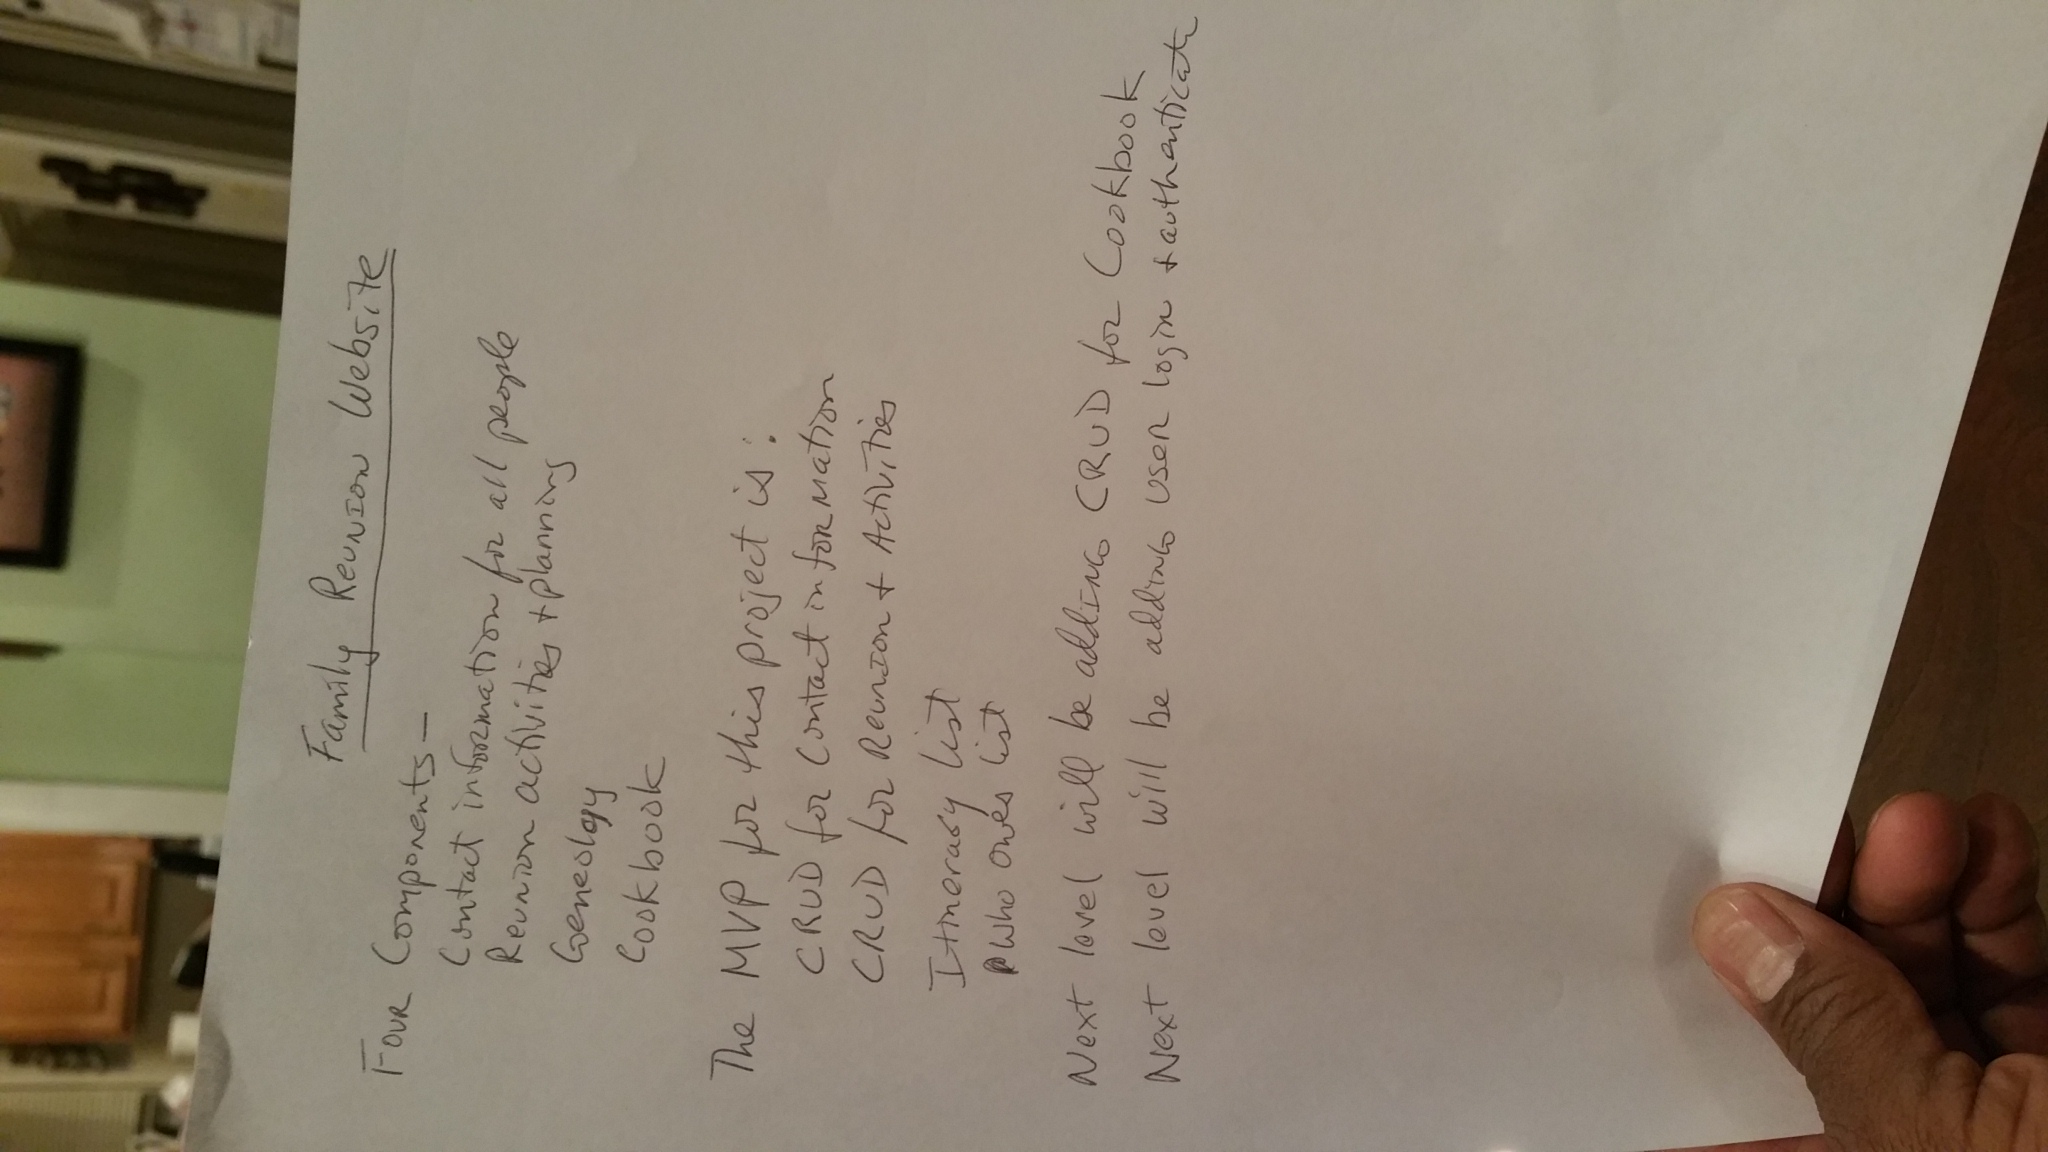 Family Reunion Website
Four Components -
Contact information for all people
Reunion activities + planning
Geneology
Cookbook
The MVP for this project is:
CRUD for Contact information
CRUD for Reunion + Activities
Itinerary list
Who owes list
Next level will be adding CRUD for Cookbook
Next level will be adding user login + authenticate